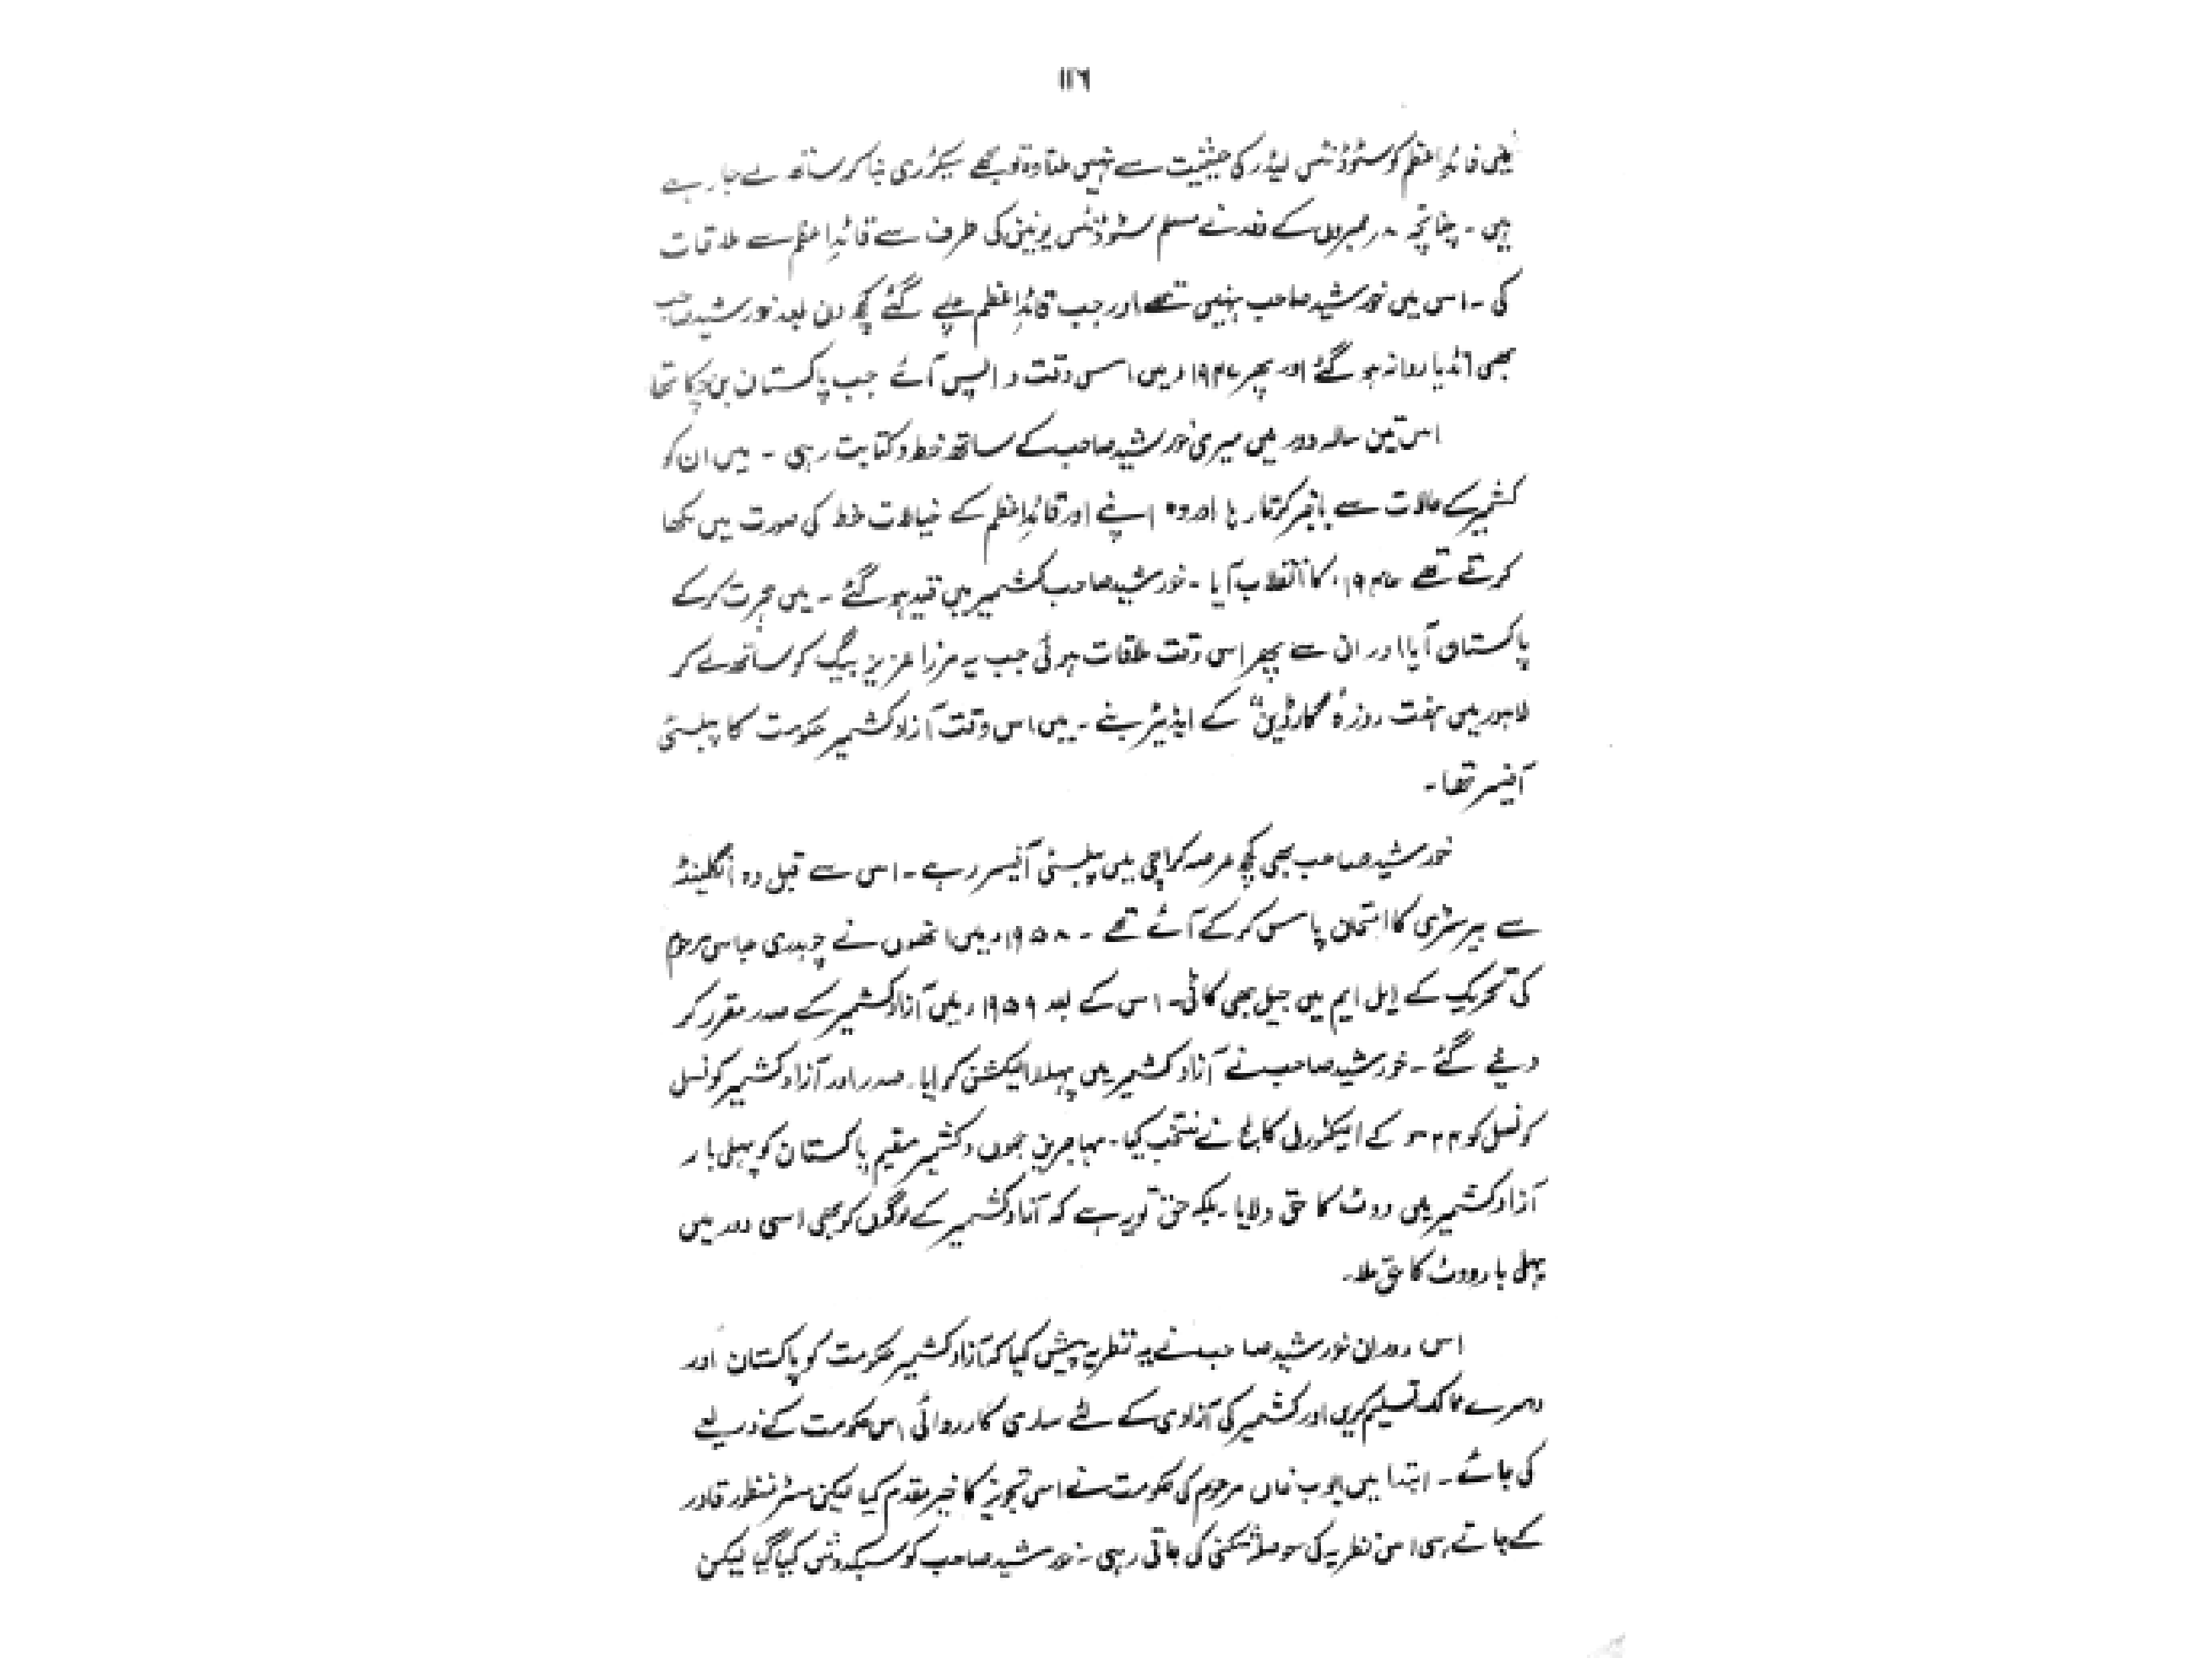 ۱۲۶
میں قائد اعظم کو سٹوڈنٹس لیڈر کی حیثیت سے نہیں ملتا وہ تو مجھے سیکرٹری بنا کر ساتھ لے جا رہے
ہیں ۔ چنانچہ ممبروں کے وفد نے مسلم سٹوڈنٹس یونین کی طرف سے قائد اعظم سے ملاقات
کی ۔ اس میں خورشید صاحب نہیں تھے اور جب قائد اعظم چلے گئے کچھ دن بعد خورشید صاحب
بھی انڈیا روانہ ہو گئے اور پھر ۱۹۴۷ء میں اس وقت واپس آئے جب پاکستان بن چکا تھا
اس تین سالہ دور میں میری خورشید صاحب کے ساتھ خط و کتابت رہی ۔ میں ان کو
کشمیر کے حالات سے باخبر کرتا رہا اور وہ اپنے اور قائد اعظم کے خیالات خط کی صورت میں لکھا
کرتے تھے ۱۹۴۷ء کا انقلاب آیا ۔ خورشید صاحب کشمیر میں قید ہو گئے ۔ میں ہجرت کر کے
پاکستان آیا اور ان سے پھر اس وقت ملاقات ہوئی جب یہ مرزا عزیز بیگ کو ساتھ لے کر
لاہور میں ہفت روزہ "گارڈین" کے ایڈیٹر بنے ۔ میں اس وقت آزاد کشمیر حکومت کا پبلسٹی
آفیسر تھا ۔
خورشید صاحب بھی کچھ عرصہ کراچی میں پبلسٹی آفیسر رہے ۔ اس سے قبل وہ انگلینڈ
سے بیرسٹری کا امتحان پاس کر کے آئے تھے ۔ ۱۹۵۸ء میں انھوں نے چوہدری عباس مرحوم
کی تحریک کے ایل ایم میں جیل بھی کاٹی ۔ اس کے بعد ۱۹۵۹ء میں آزاد کشمیر کے صدر مقرر کر
دئیے گئے ۔ خورشید صاحب نے آزاد کشمیر میں پہلا الیکشن کرایا ۔ صدر اور آزاد کشمیر کونسل
کونسل کو کے الیکٹورل کالج نے منتخب کیا ۔ مہاجرین جموں و کشمیر مقیم پاکستان کو پہلی بار
آزاد کشمیر میں ووٹ کا حق دلایا ۔ بلکہ حق تو یہ ہے کہ آزاد کشمیر کے لوگوں کو بھی اسی دور میں
پہلی بار ووٹ کا حق ملا ۔
اسی دوران خورشید صاحب نے یہ نظریہ پیش کیا کہ آزاد کشمیر حکومت کو پاکستان اور
دوسرے ممالک تسلیم کریں اور کشمیر کی آزادی کے لئے ساری کارروائی اس حکومت کے ذریعے
کی جائے ۔ ابتدا میں ایوب خاں مرحوم کی حکومت نے اس تجویز کا خیر مقدم کیا لیکن مسٹر منظور قادر
کے جاتے ہی اس نظریہ کی حوصلہ شکنی کی جاتی رہی ۔ خورشید صاحب کو سبکدوش کیا گیا لیکن